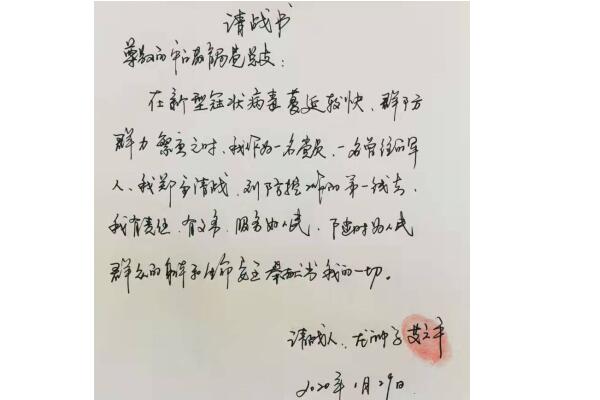 请战书
尊敬的中心局党总支:
在新型冠状病毒蔓延较快、群防
群力紧要之时,我作为一名党员,一名曾经的军
人,我郑重请战,到防控的第一线去,
我有责任,有义务,服务的人民,随时为人民
群众的身体和生命安全奉献出我的一切。
请战人:艾立平
2020年1月29日